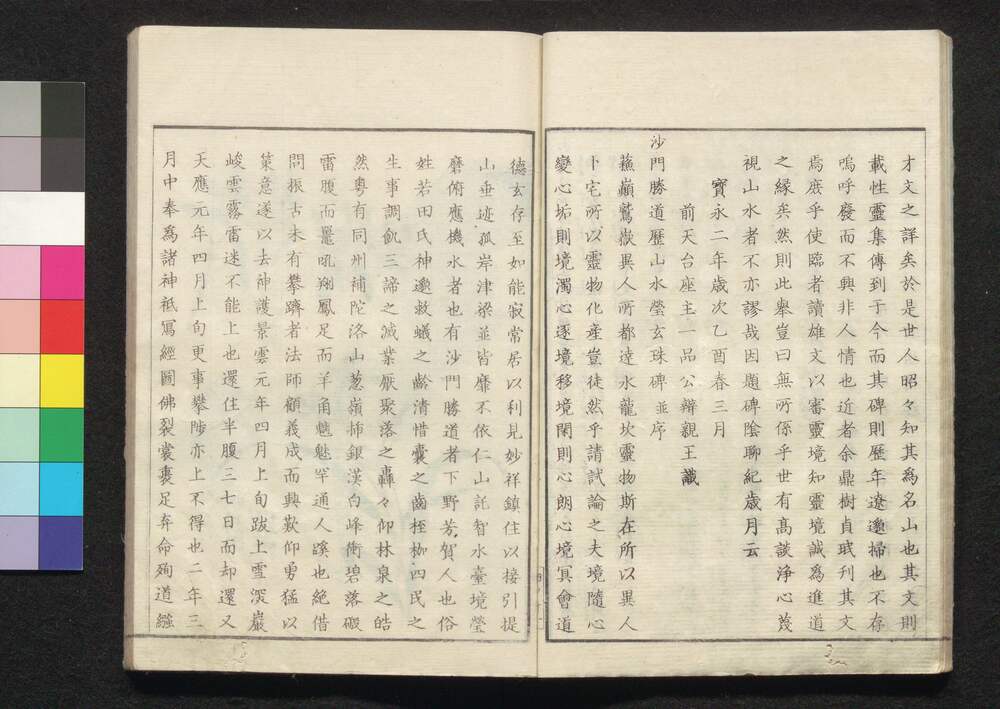 才文之詳矣於是世人昭々知其為名山也其文則
載性靈集傳到于今而其碑則歷年遼邈掃也不存
嗚呼廢而不興非人情也近者余鼎樹貞珉刊其文
焉庶乎使臨者讀雄文以審靈境知靈境誠為進道
之緣矣然則此舉豈曰無所係乎世有高談淨心蔑
視山水者不亦謬哉因題碑陰聊紀歲月云
寶永二年歲次乙酉春三月
前天台座主一品公辨親王識
沙門勝道歷山水瑩玄珠碑並序
蘓巔鷲嶽異人所都達水龍坎靈物斯在所以異人
卜宅所以靈物化產豈徒然乎請試論之夫境隨心
變心垢則境濁心逐境移境閑則心朗心境冥會道
德玄存至如能寂常居以利見妙祥鎮住以接引提
山垂迹孤岸津梁並皆靡不依仁山託智水臺境瑩
磨俯應機水者也有沙門勝道者下野芳賀人也俗
姓若田氏神邈救蟻之齡清惜囊之齒桎枷四民之
生事調飢三諦之滅業厭聚落之轟々仰林泉之皓
然粤有同州補陀洛山葱嶺揷銀漢白峰衝碧落磤
雷腹而鼉吼翔鳳足而羊角魑魅罕通人蹊也絶借
問振古未有攀躋者法師顧義成而興歎仰勇猛以
策意遂以去神護景雲元年四月上旬跋上雪深巖
峻雲霧雷迷不能上也還住半腹三七日而却還又
天應元年四月上旬更事攀陟亦上不得也二年三
月中奉為諸神祇寫經圖佛裂裳裹足弃命殉道繦